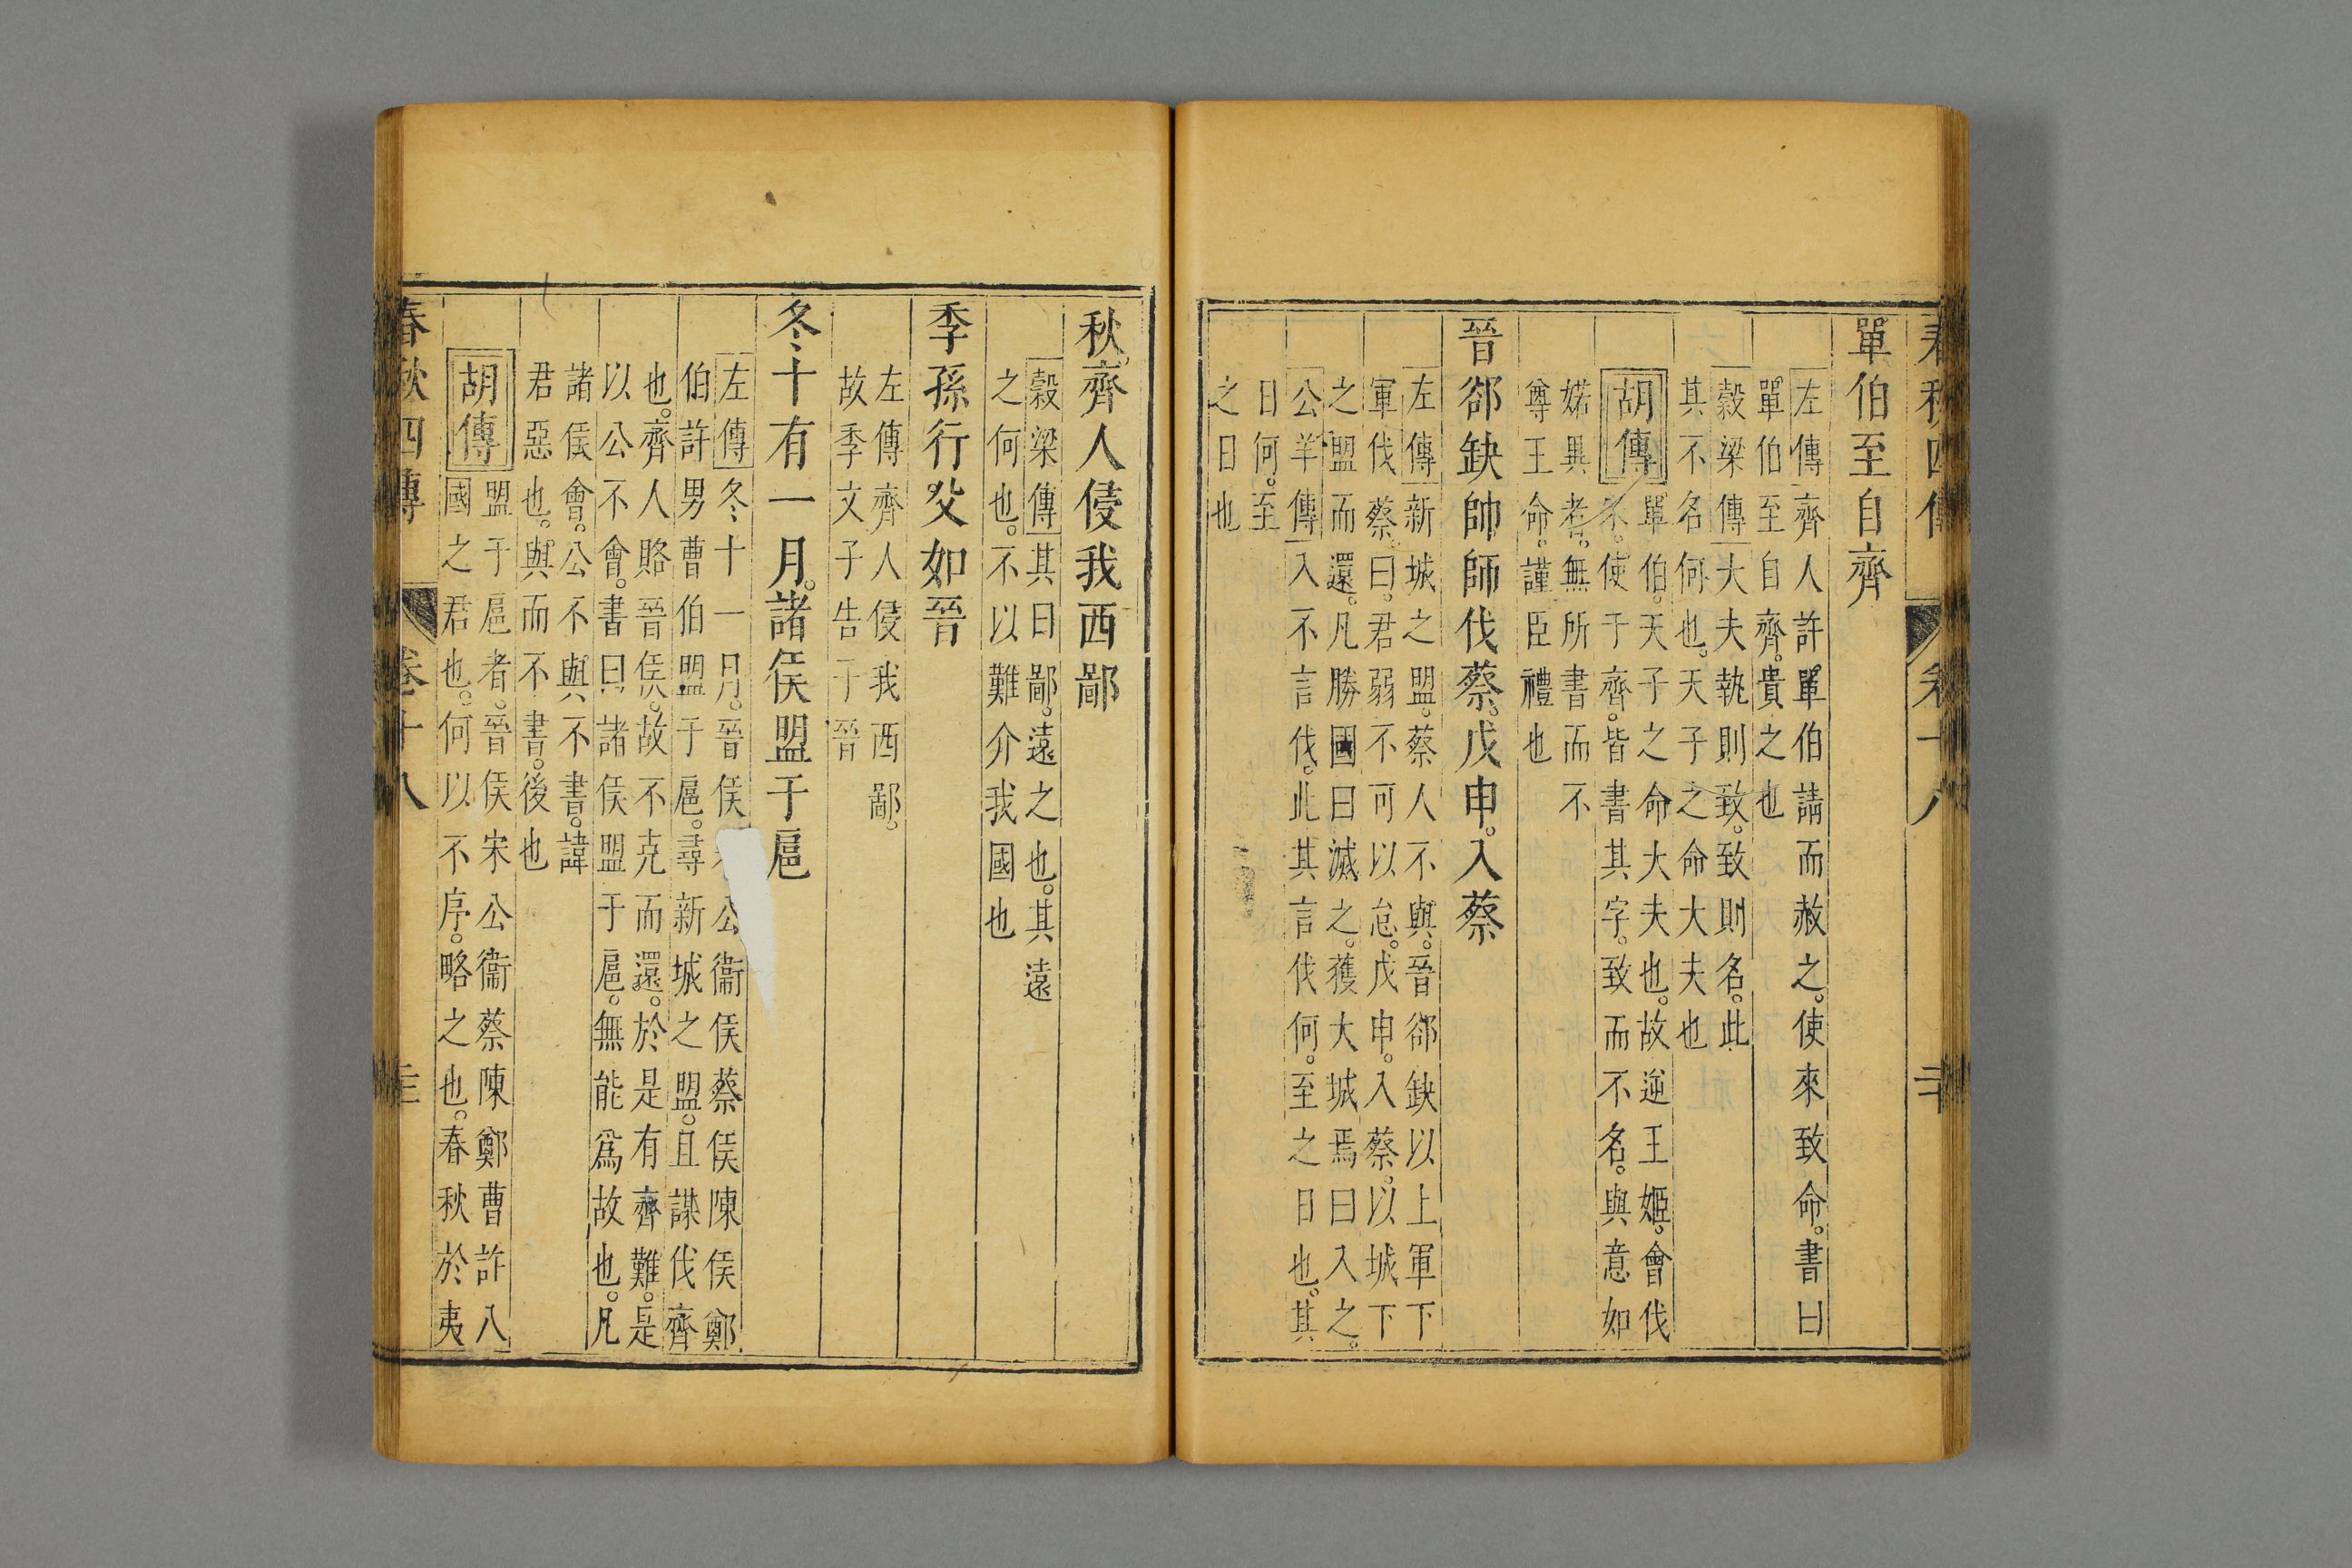 春秋四傳 卷十八 二十
單伯至自齊
左傳齊人許單伯請而赦之。使來致命。書曰
單伯至自齊。貴之也
穀梁傳大夫執則致。致則名。此
其不名何也。天子之命大夫也
胡傳單伯。天子之命大夫也。故逆王姬。會伐
不。使于齊。皆書其字。致而不名。與意如
婼異者。無所書而不
尊王命。謹臣禮也
晉郤缺帥師伐蔡。戊申。入蔡
左傳新城之盟。蔡人不與。晉郤缺以上軍下
軍伐蔡。曰。君弱不可以怠。戊申。入蔡。以城下
之盟而還。凡勝國曰滅之。獲大城焉曰入之。
公羊傳入不言伐。此其言伐何。至之日也。其
日何。至
之日也
秋。齊人侵我西鄙
穀梁傳其曰鄙。遠之也。其遠
之何也。不以難介我國也
季孫行父如晉
左傳齊人侵我西鄙。
故季文子告于晉
冬十有一月。諸侯盟于扈
左傳冬十一月。晉侯公衞侯蔡侯陳侯鄭
伯許男曹伯盟于扈。尋新城之盟。且謀伐齊
也。齊人賂晉侯。故不克而還。於是有齊難。是
以公不會。書曰諸侯盟于扈。無能爲故也。凡
諸侯會。公不與不書。諱
君惡也。與而不書。後也
胡傳盟于扈者。晉侯宋公衞蔡陳鄭曹許八
國之君也。何以不序。略之也。春秋於夷
春秋四傳 卷十八